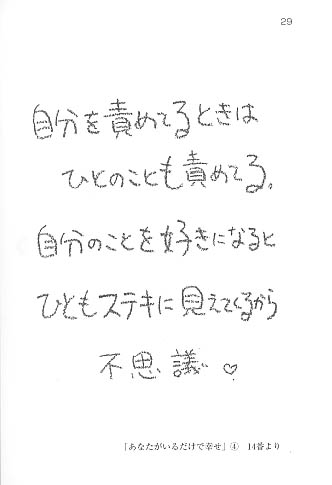 29
自分を責めてるときは
ひとのことも責めてる。
自分のことを好きになると
ひともステキに見えてくるから
不思議♡
「あなたがいるだけで幸せ」④ 14番より